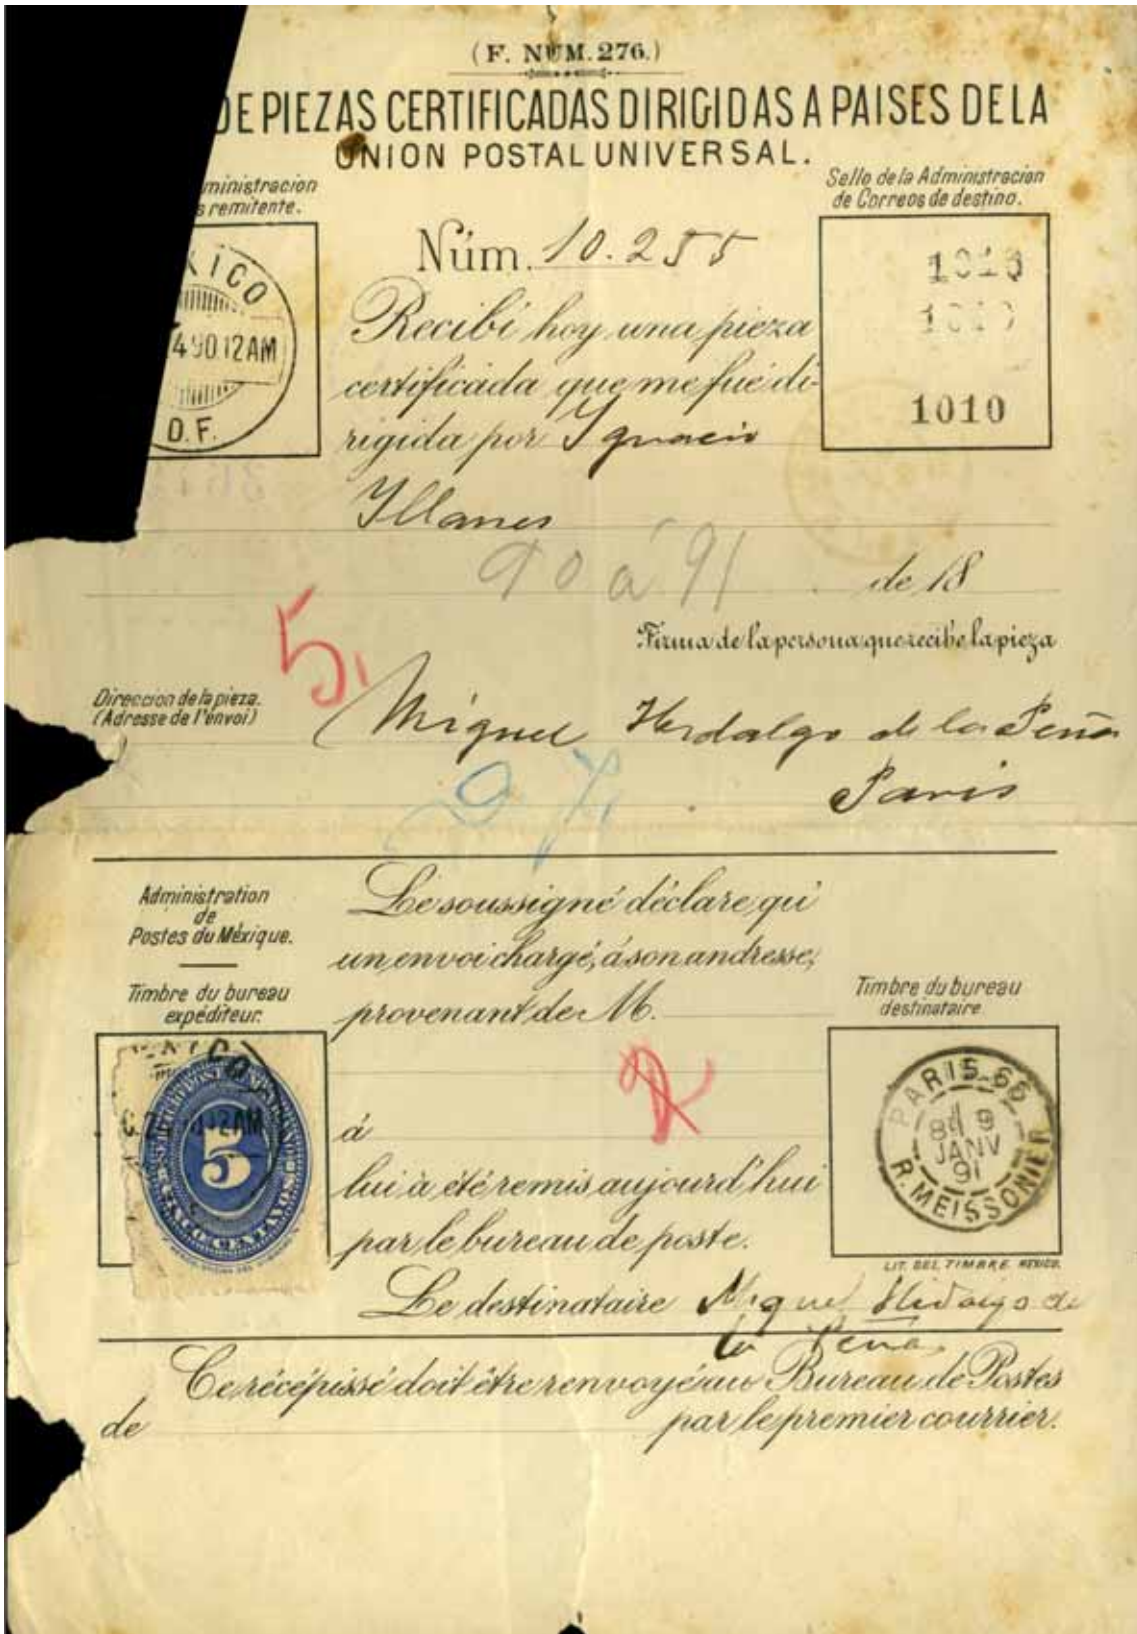 (F. NUM. 276.)
DE PIEZAS CERTIFICADAS DIRIGIDAS A PAISES DE LA
UNION POSTAL UNIVERSAL.
ministracion
s remitente.
Sello de la Administracion
de Correos de destino.
XICO
490.12AM
D.F.
Núm. 10.255
1010
1010
1010
Recibí hoy una pieza
certificada que me fué di-
rigida por Ignacio
Illanes
90 á 91 de 18
Firma de la persona que recibe la pieza
5,
Direccion de la pieza.
(Adresse de l'envoi)
Miguel Hidalgo de la Peña
Paris
Administration
de
Postes du Méxique.
Timbre du bureau
expéditeur.
Le soussigné déclare, qu'
un envoi chargé, á son andresse,
provenant de M.
Timbre du bureau
destinataire
5
CINCO CENTAVOS
2
PARIS 66
9
JANV
91
R. MEISSONIER
á
lui à été remis aujourd'hui
par le bureau de poste.
LIT. DEL TIMBRE MEXICO.
Le destinataire Miguel Hidalgo de
la Peña
Ce récépissé doit être renvoyé au Bureau de Postes
de par le premier courrier.